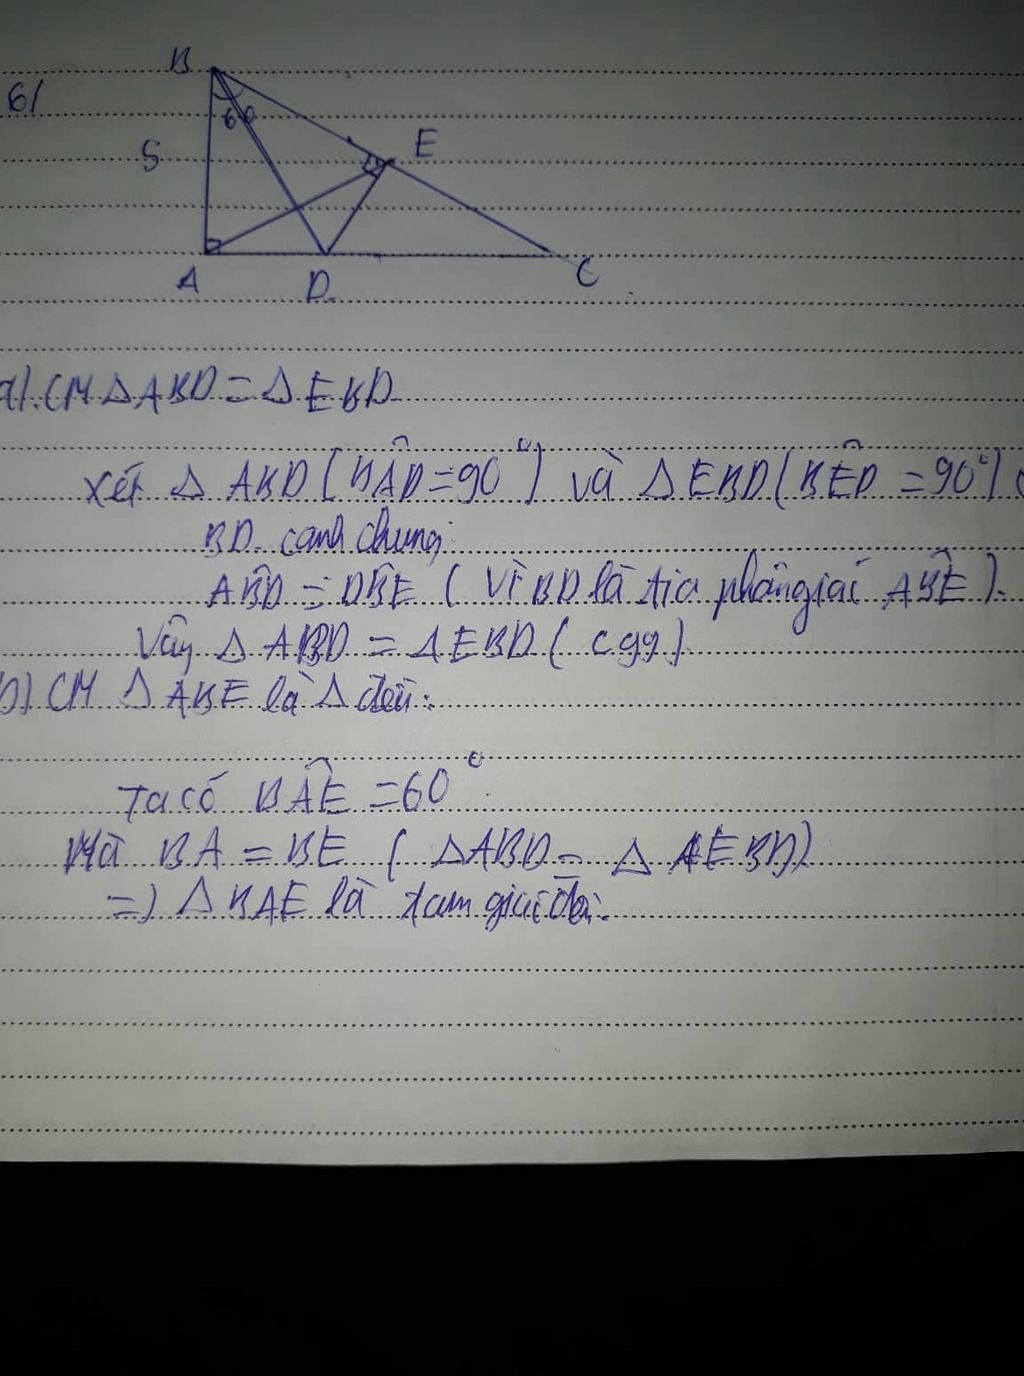 6/
B
60
E
5
A
D
C
a). CM Δ ABD = Δ EBD
Xét Δ ABD (BÂD = 90°) và Δ EBD (BÊD = 90°)
BD cạnh chung
AB̂D = DB̂E (Vì BD là tia phân giác AB̂E).
Vậy Δ ABD = Δ EBD (cgg)
b) CM Δ ABE là Δ đều:
Ta có BÂE = 60°
Mà BA = BE (Δ ABD = Δ EBD)
=) Δ BAE là tam giác đều.